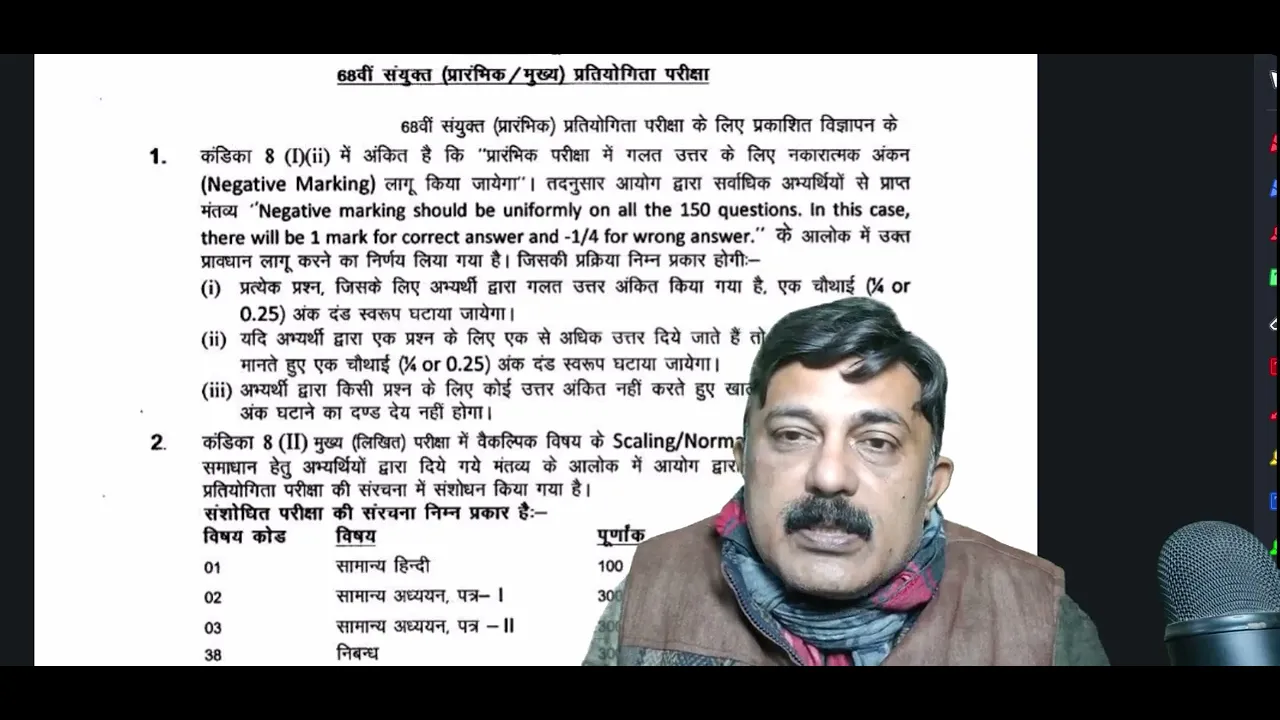 68वीं संयुक्त (प्रारंभिक/मुख्य) प्रतियोगिता परीक्षा
68वीं संयुक्त (प्रारंभिक) प्रतियोगिता परीक्षा के लिए प्रकाशित विज्ञापन के
1. कंडिका 8 (I)(ii) में अंकित है कि "प्रारंभिक परीक्षा में गलत उत्तर के लिए नकारात्मक अंकन
(Negative Marking) लागू किया जायेगा"। तदनुसार आयोग द्वारा सर्वाधिक अभ्यर्थियों से प्राप्त
मंतव्य "Negative marking should be uniformly on all the 150 questions. In this case,
there will be 1 mark for correct answer and -1/4 for wrong answer." के आलोक में उक्त
प्रावधान लागू करने का निर्णय लिया गया है। जिसकी प्रक्रिया निम्न प्रकार होगीः–
(i) प्रत्येक प्रश्न, जिसके लिए अभ्यर्थी द्वारा गलत उत्तर अंकित किया गया है, एक चौथाई (¼ or
0.25) अंक दंड स्वरूप घटाया जायेगा।
(ii) यदि अभ्यर्थी द्वारा एक प्रश्न के लिए एक से अधिक उत्तर दिये जाते हैं तो
मानते हुए एक चौथाई (¼ or 0.25) अंक दंड स्वरूप घटाया जायेगा।
(iii) अभ्यर्थी द्वारा किसी प्रश्न के लिए कोई उत्तर अंकित नहीं करते हुए
अंक घटाने का दण्ड देय नहीं होगा।
2. कंडिका 8 (II) मुख्य (लिखित) परीक्षा में वैकल्पिक विषय के Scaling/Norma
समाधान हेतु अभ्यर्थियों द्वारा दिये गये मंतव्य के आलोक में आयोग द्वारा
प्रतियोगिता परीक्षा की संरचना में संशोधन किया गया है।
संशोधित परीक्षा की संरचना निम्न प्रकार हैः–
विषय कोड विषय पूर्णांक
01 सामान्य हिन्दी 100
02 सामान्य अध्ययन, पत्र– I 300
03 सामान्य अध्ययन, पत्र –II 300
38 निबन्ध 300